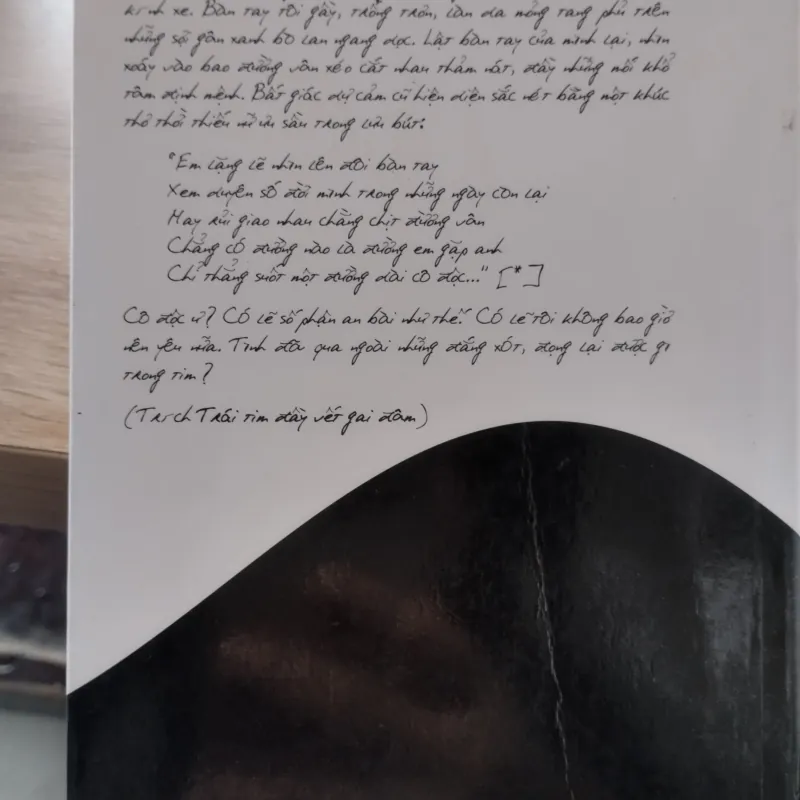 kính xe. Bàn tay tôi gầy, trống trơn, làn da mỏng tang phủ trên
những sợi gân xanh bò lan ngang dọc. Lật bàn tay của mình lại, nhìn
xoáy vào bao đường vân xéo cắt nhau thảm nát, đầy những mối khổ
tâm định mệnh. Bất giác dự cảm cũ hiện diện sắc nét bằng một khúc
thơ thời thiếu nữ ưu sầu trong lưu bút:
"Em lặng lẽ nhìn lên đôi bàn tay
Xem duyên số đời mình trong những ngày còn lại
May rủi giao nhau chằng chịt đường vân
Chẳng có đường nào là đường em gặp anh
Chỉ thẳng suốt một đường dài cô độc..." [*]
Cô độc ư? Có lẽ số phận an bài như thế. Có lẽ tôi không bao giờ
nên yêu nữa. Tình đã qua ngoài những đắng xót, đọng lại được gì
trong tim?
(Trích Trái tim đầy vết gai đâm)